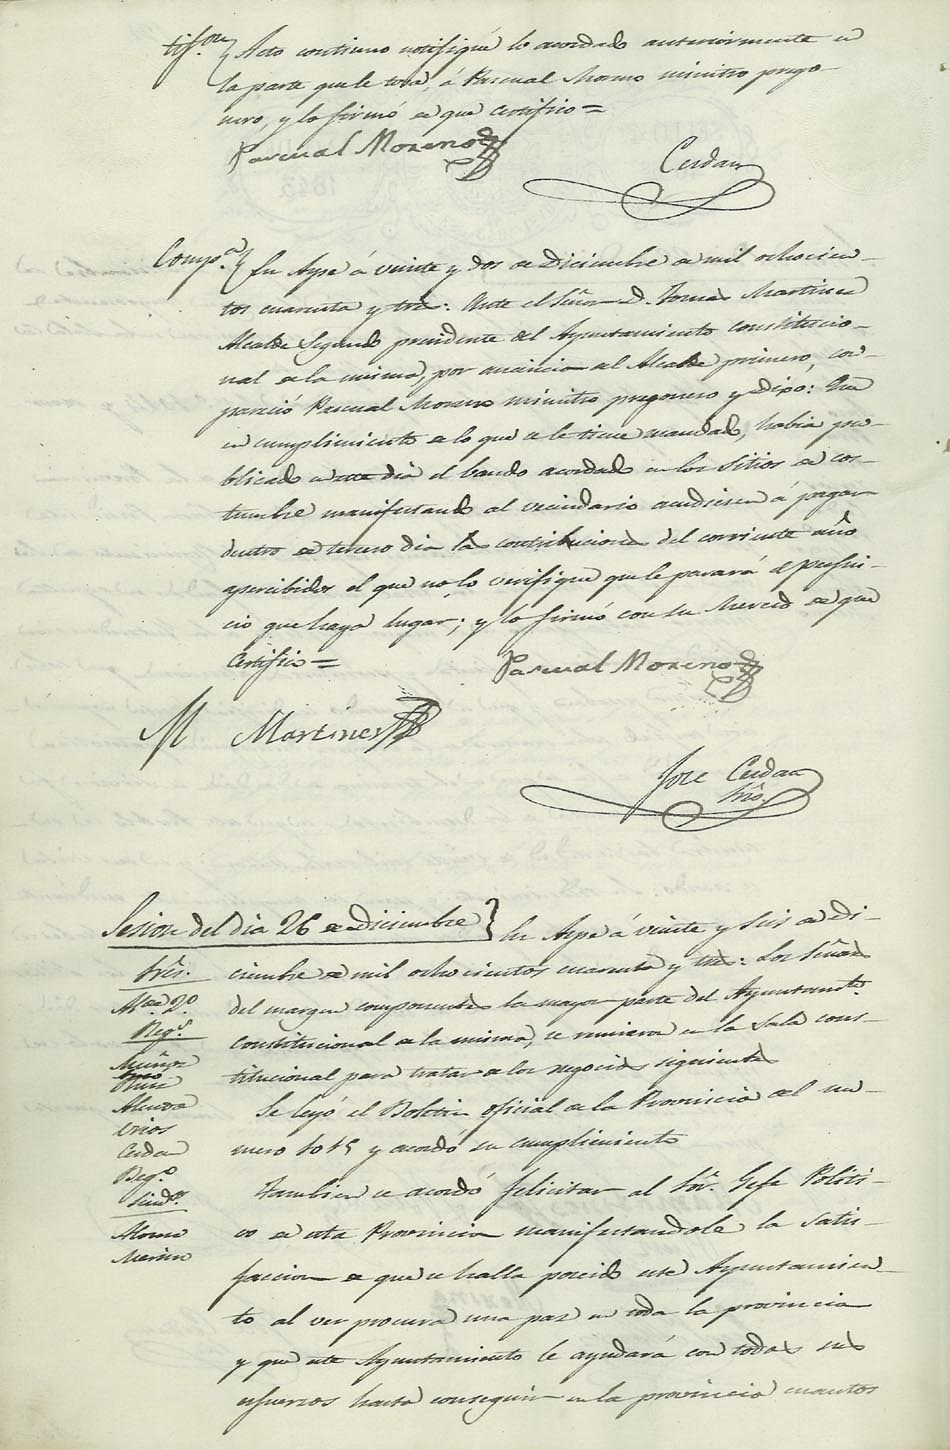 tifon. } Acto continuo notifiqué lo acordado anteriormente en
la parte que le toca, á Pascual Moreno ministro prego-
nero, y lo firmó de que certifico =
Pascual Moreno
Cerdan
Compª. } En Aspe á veinte y dos de Diciembre de mil ochocien-
tos cuarenta y tres: Ante el Señor D. Tomas Martinez
Alcalde Segundo presidente del Ayuntamiento constitucio-
nal de la misma, por ausencia del Alcalde primero, com-
pareció Pascual Moreno ministro pregonero y dixo: Que
en cumplimiento de lo que se le tiene mandado, habia pu-
blicado en este dia el bando acordado en los sitios de cos-
tumbre manifestando al vecindario acudiesen á pagar
dentro de tercero dia las contribuciones del corriente año
apercibidos el que no lo verifique que le parará el perjui-
cio que haya lugar; y lo firmó con su Merced de que
Certifico =
Pascual Moreno
M Martines
Jose Cerdan
Srio.
Sesion del dia 26 de Diciembre } En Aspe á veinte y seis de Di-
Srês. ciembre de mil ochocientos cuarenta y tres: Los Señores
Alce. 2º. del margen componentes la mayor parte del Ayuntamto.
Regs. constitucional de la misma, se reunieron en la sala cons-
Muñoz titucional para tratar de los negocios siguientes
Alcaraz Se leyó el Boletin oficial de la Provincia del nu-
Cerdan mero 1045 y acordó su cumplimiento
Regs.
Sindos. Tambien se acordó felicitar al Sor. Gefe Politi-
Alonso co de esta Provincia manifestandole la satis-
Merino
faccion de que se halla poseido este Ayuntamien-
to al ver procura una paz en toda la provincia
y que este Ayuntamiento le ayudará con todos sus
esfuerzos hasta conseguir en la provincia cuantos